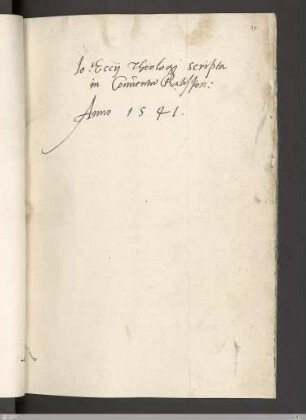 Io: Eccij Theologi scripta
in Conuentu Ratispon:
Anno 1541.